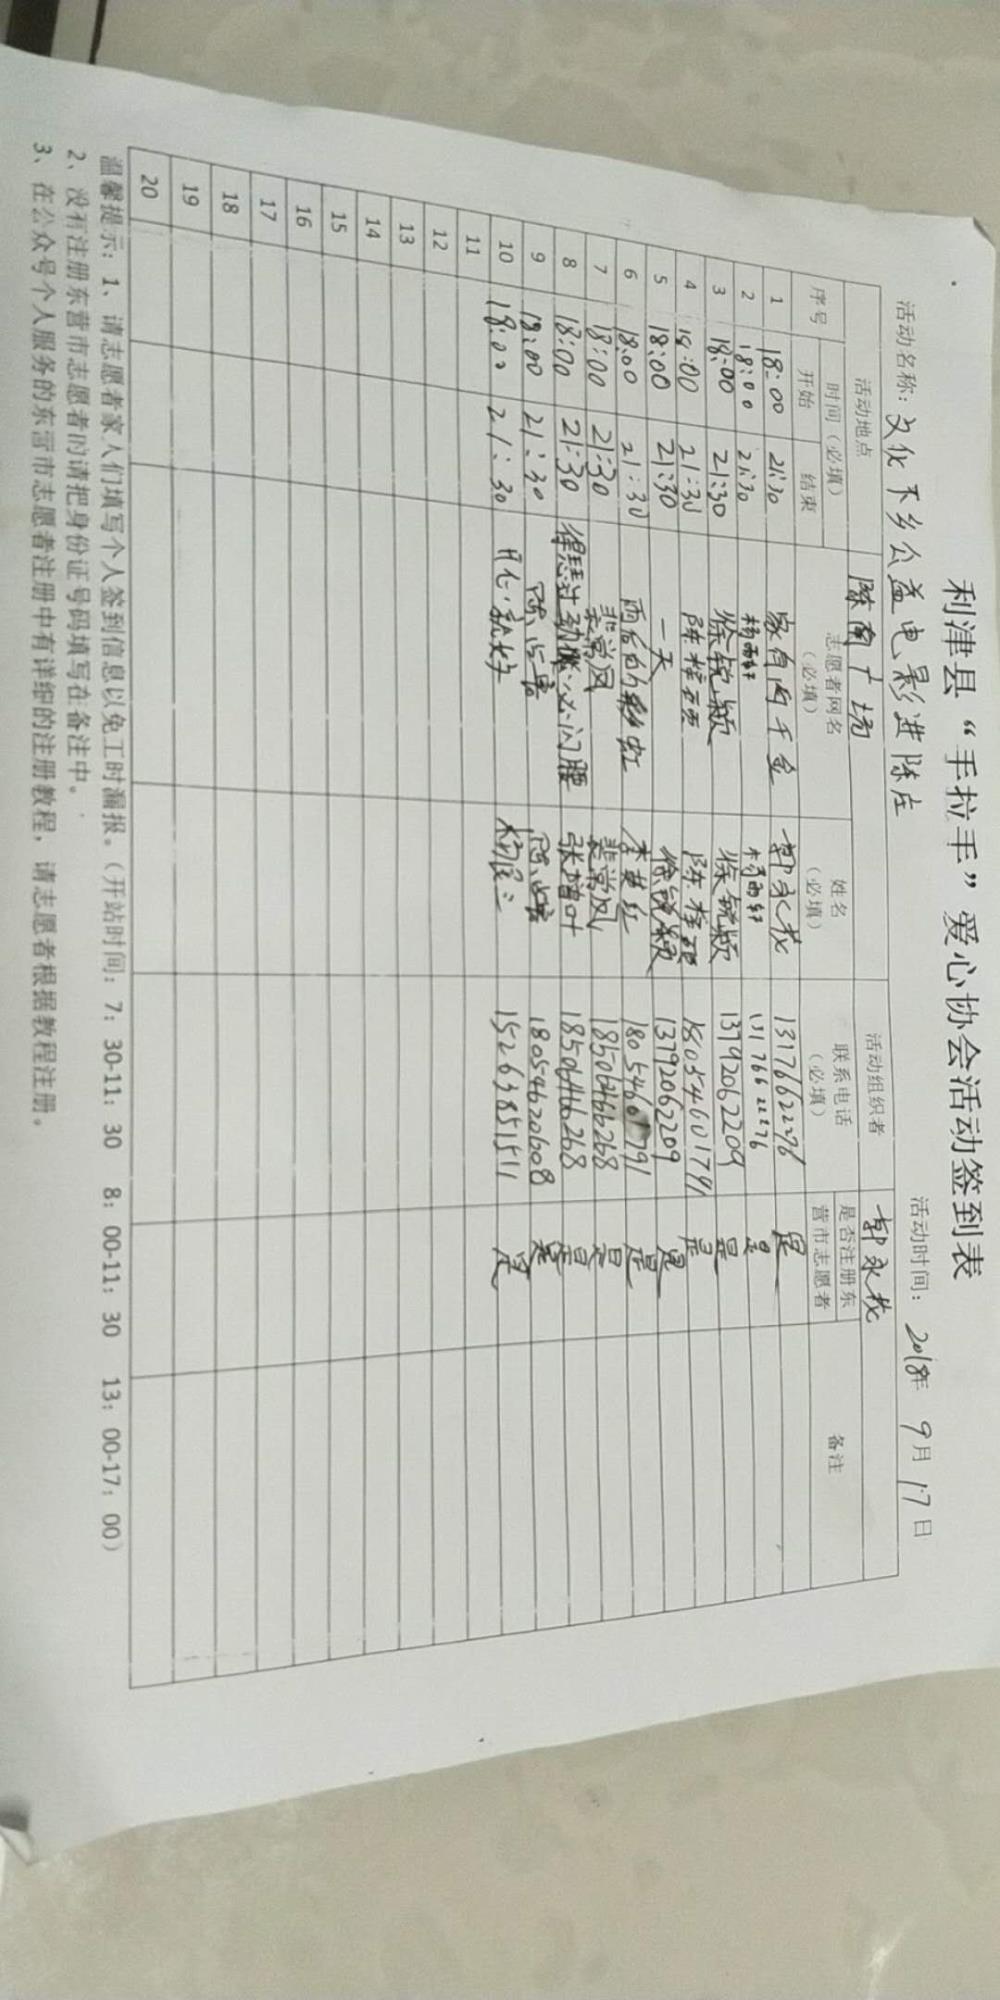 利津县“手拉手”爱心协会活动签到表
活动名称：文化下乡公益电影进陈庄 活动时间：2018年9月17日
活动地点 陈南广场 活动组织者 郭永
序号 时间（必填） 志愿者网名（必填） 姓名（必填） 联系电话（必填） 是否注册东营市志愿者 备注
开始 结束
1 18:00 21:30 家有两千金 郭永 是
2 18:00 21:30 杨雨轩 杨雨轩 是
3 18:00 21:30 徐锐颖 徐锐颖 13792062209 是
4 18:00 21:30 陈 陈 18054601791 是
5 18:00 21:30 一天 徐锐颖 13792062209 是
6 18:00 21:30 雨后的彩虹 李 18054601791 是
7 18:00 21:30 裴常风 裴常风 18506466268 是
8 18:00 21:30 闪腰 张增叶 18506466268 是
9 18:00 21:30 陈 陈 18054620608 是
10 18:00 21:30 就好 杨 15263851511 是
11
12
13
14
15
16
17
18
19
20
温馨提示：1、请志愿者家人们填写个人签到信息以免工时漏报。（开站时间：7：30-11：30 8：00-11：30 13：00-17：00）
2、没有注册东营市志愿者的请把身份证号码填写在备注中。
3、在公众号个人服务的东营市志愿者注册中有详细的注册教程，请志愿者根据教程注册。